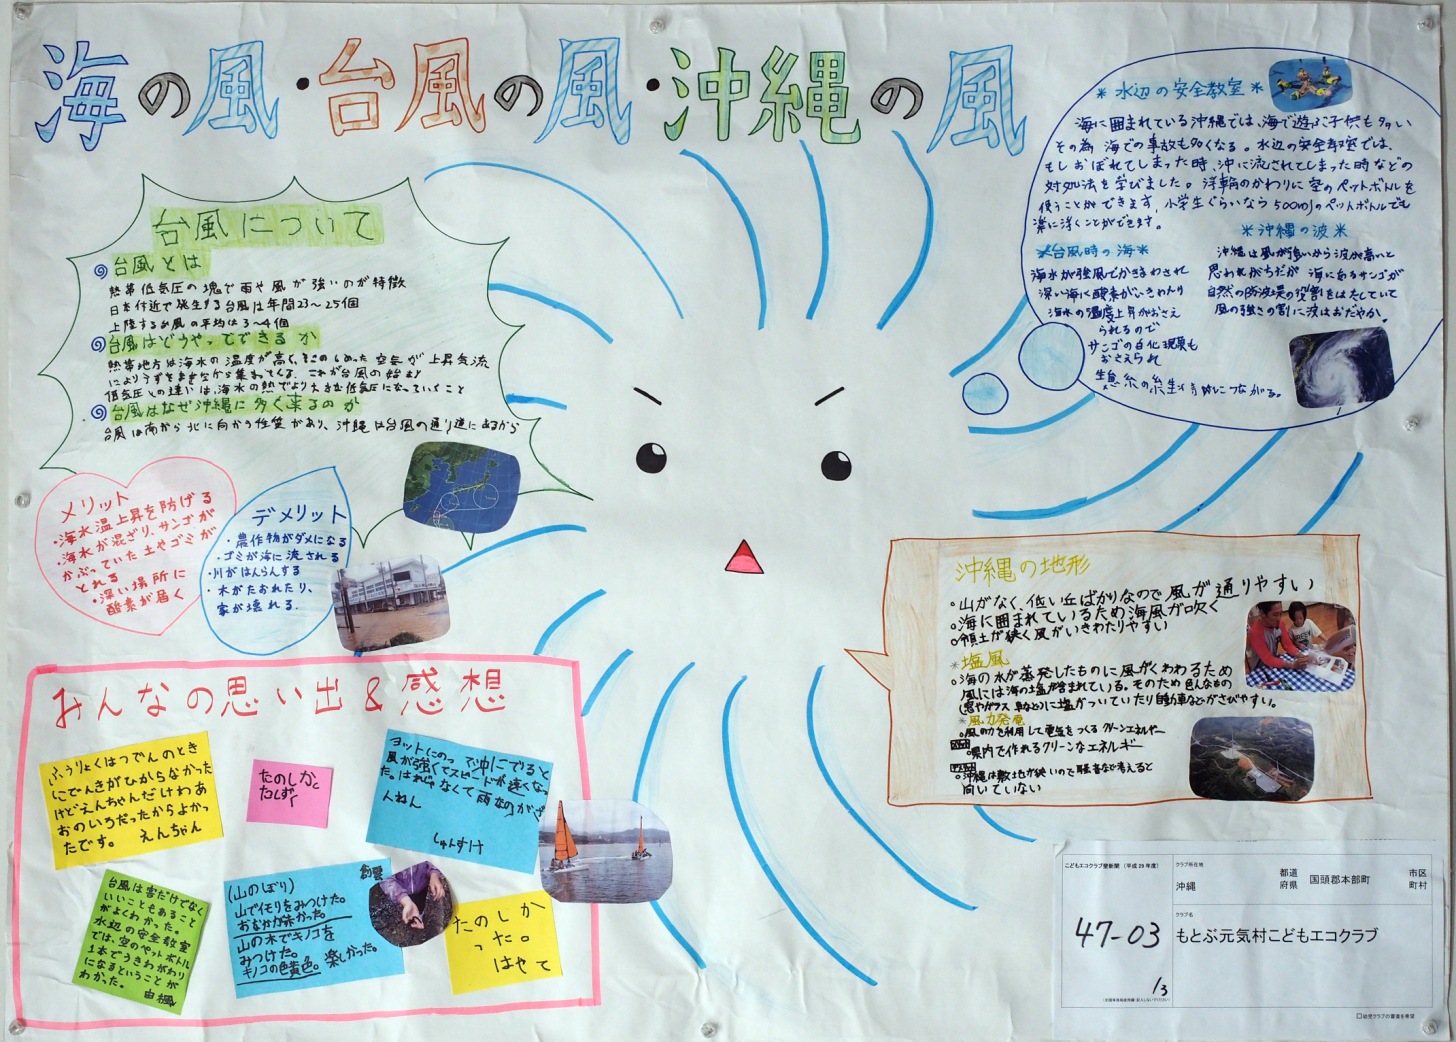 海の風・台風の風・沖縄の風
台風について
台風とは
熱帯低気圧の塊で雨や風が強いのが特徴
日本付近で発生する台風は年間23〜25個
上陸する台風の平均は3〜4個
台風はどうやってできるか
熱帯地方は海水の温度が高く、そこのしめった空気が上昇気流
によりうずをまき空から集まってくる。これが台風の始まり
低気圧との違いは、海水の熱でより大きな低気圧になっていくこと
台風はなぜ沖縄に多く来るのか
台風は南から北に向かう性質があり、沖縄は台風の通り道にあるから
メリット
・海水温上昇を防げる
・海水が混ざり、サンゴが
かぶっていた土やゴミが
とれる
・深い場所に
酸素が届く
デメリット
・農作物がダメになる
・ゴミが海に流される
・川がはんらんする
・木がたおれたり、
家が壊れる.
＊水辺の安全教室＊
海に囲まれている沖縄では、海で遊ぶ子供も多い
その為 海での事故も多くなる。水辺の安全教室では、
もしおぼれてしまった時、沖に流されてしまった時などの
対処法を学びました。浮輪のかわりに空のペットボトルを
使うことができます。小学生ぐらいなら500mlのペットボトルでも
楽に浮くことができます。
＊台風時の海＊
海水が強風でかきまわされ
深い海に酸素がいきわたり
海水の温度上昇がおさえ
られるので
サンゴの白化現象も
おさえられ
＊沖縄の波＊
沖縄は風が強いから波が高いと
思われがちだが 海にあるサンゴが
自然の防波堤の役割をはたしていて
風の強さの割に波はおだやか。
沖縄の地形
。山がなく、低い丘ばかりなので風が通りやすい
。海に囲まれているため海風が吹く
。領土が狭く風がいきわたりやすい
＊塩風
。海の水が蒸発したものに風がくわわるため
風には海の塩が含まれている。そのため色んなもの
(窓やガラス 車など)に塩がついていたり自動車などがさびやすい。
＊風力発電
。風の力を利用して電気をつくる クリーンエネルギー
。県内で作れるクリーンなエネルギー
。沖縄は敷地が狭いので騒音など考えると
向いていない
みんなの思い出&感想
ふうりょくはつでんのとき
にでんきがひからなかった
けどえんちゃんだけわあ
おのいろだったからよかっ
たです。 えんちゃん
たのしかっ
ヨットにのって沖にでると
風が強くてスピードが速くなっ
しゅんすけ
台風は害だけでなく
いいこともあること
がよくわかった。
水辺の安全教室
では、空のペットボトル
1本でうきわがわり
になるということが
わかった。
(山のぼり)
山でイモリをみつけた。
おなかが赤かった。
山の木でキノコを
みつけた。
キノコの色黄色。楽しかった。
たのしか
った。
はやて
こどもエコクラブ壁新聞 (平成29年度)
47-03
13
クラブ所在地
沖縄
都道
府県
国頭郡本部町
市区
町村
クラブ名
もとぶ元気村こどもエコクラブ
□幼児クラブの審査を希望